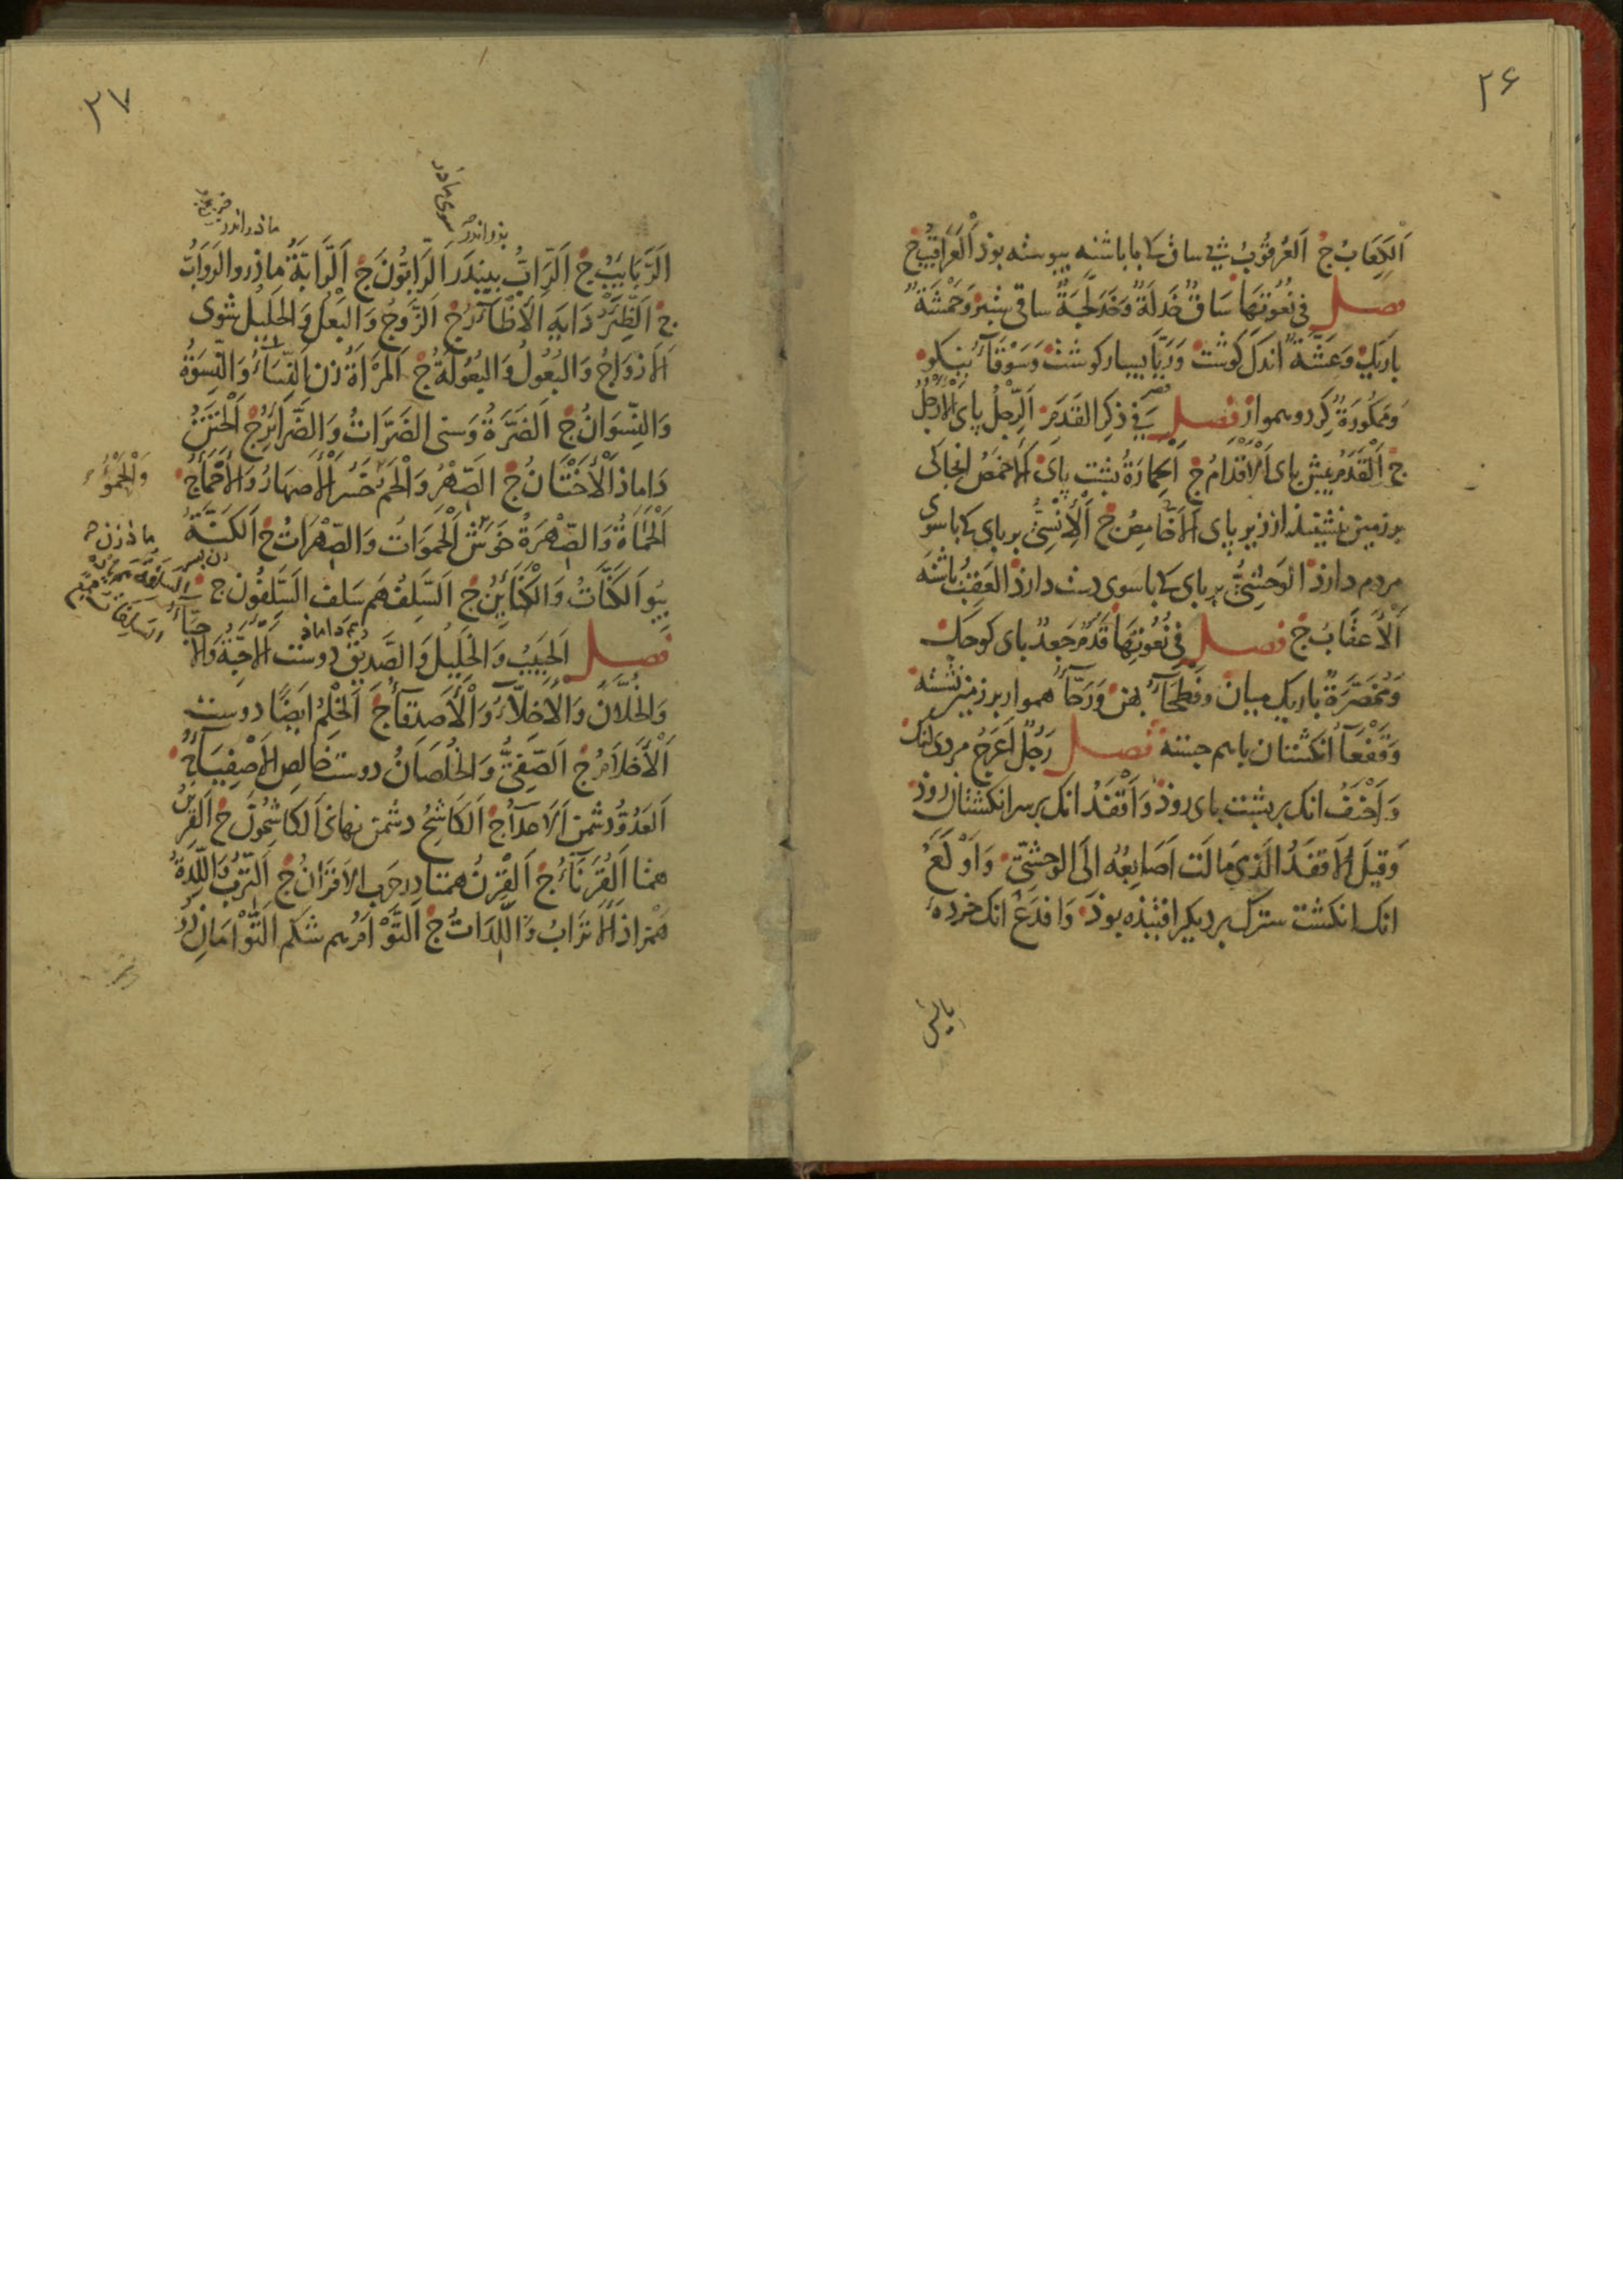 ۲۶
اَلْكِعَابُ ج اَلعُرْقُوبُ پی ساق کی با پاشنه پیوسته بوذ اَلْعَرَاقِيْبُ ج
فصل فِي نُعُوتِهَا سَاقٌ خَدْلَةٌ وَخَدَلَّجَةٌ ساقی سَتبر وَحَمْشَةٌ
باریک وَعَشَّةٌ اندک کوشت وَرَيَّا بسیار کوشت وَسَوْقَآءُ نیکو
وَمَمْكُورَةٌ کرد وهموار فصل فِي ذِكرِ القَدَمِ اَلرِّجْلُ پای اَلْاَرْجُلُ
ج اَلْقَدَمُ پیش پای اَلْاَقْدَامُ ج اَلْحِمَارَةُ پشت پای اَلْاَخْمَصُ انجا کی
بر زمین ننشیند از زیر پای اَلْاَخَامِصُ ج اَلْاِنْسِيُّ بر پای کی با سوی
مردم دارذ الوَحْشِيُّ بر پای کی با سوی دست دارذ العَقِبُ پاشنه
اَلْاَعقَابُ ج فصل فِي نُعُوتِهَا قَدَمٌ جَعدٌ پای کوچک
وَمُخَصَّرَةٌ باریک میان وفَطْحَآءُ پهن وَرَحَّآءُ هموار بر زمین نشسته
وَقَفْعَآءُ انکشتان باهم جسته فصل رَجُلٌ اَعْرَجُ مردی لنک
وَاَحْنَفُ انک بر پشت پای روذ وَاَقْفَدُ انک بر سر انکشتان روذ
وَقِيْلَ اَلْاَقفَدُ الَّذِي مَالَت اَصَابِعُهُ اِلَى الوَحْشِيِّ وَاَوْكَعُ
انک انکشت سترک بر دیکر افتیذه بوذ وَافدَعُ انک خرده
۲۷
ماذراندر
پذراندر
اَلرَّبَايِبُ ج اَلرَّابُّ پیندر اَلرَّابُّونَ ج اَلرَّابَّةُ ماذرو الرَوَابُّ
ج اَلظِّئْرُ دَایه اَلْاَظْآرُ ج اَلزَّوجُ وَالبَعْلُ وَالحَلِيْلُ شوی
اَلْاَزوَاجُ وَالبُعُولُ وَالبُعُولَةُ ج اَلمَرْاَةُ زن اَلنِّسَآءُ وَالنِّسْوَةُ
وَالنِّسْوَانُ ج اَلضَّرَّةُ وَسنی الضَرَّاتُ وَالضَّرَائِرُ ج اَلْخَتَنُ
دَاماذ اَلْاَخْتَانُ ج الصِّهْرُ وَالْحَمُ خُسُر اَلْاَصهَارُ وَالْاَحْمَآءُ ج
وَالْحَمْوُ
اَلْحَمَاةُ وَالصِّهْرَةُ خَوَش اَلْحَمَوَاتُ وَالصِّهْرَاتُ ج اَلكَنَّةُ
ماذرزن
زن پسر
بیو اَلكَنَّاتُ وَالْكَنَايِنُ ج اَلسَّلِفُ هم سَلف السَّلِفُونَ ج
هم داماذ
فصل اَلحَبِيْبُ وَالْخَلِيلُ وَالصَّدِيْقُ دوست اَلْاَحِبَّةُ وَالْاَ
حِبَّآءُ
وَالخُلَّانُ وَالْاَخِلَّآءُ وَالْاَصدِقَآءُ ج اَلخِلْمُ ايضًا دوست
اَلْاَخْلَامُ ج اَلصَّفِيُّ وَالخُلصَانُ دوست خالص اَلْاَصْفِيَآءُ ج
اَلعَدُوُّ دشمن اَلْاَعدَآءُ ج اَلكَاشِحُ دشمن نهانی اَلكَاشِحُونَ ج اَلقَرِيْنُ
همتا اَلقُرَنَآءُ ج اَلقِرْنُ همتا در حرب الاَقرَانُ ج اَلتِّرْبُ وَاللِّدَةُ
همزاذ اَلْاَترَابُ وَاللِّدَاتُ ج اَلتَّوْاَمُ هم شکم اَلتَّوْاَمَانِ دُو